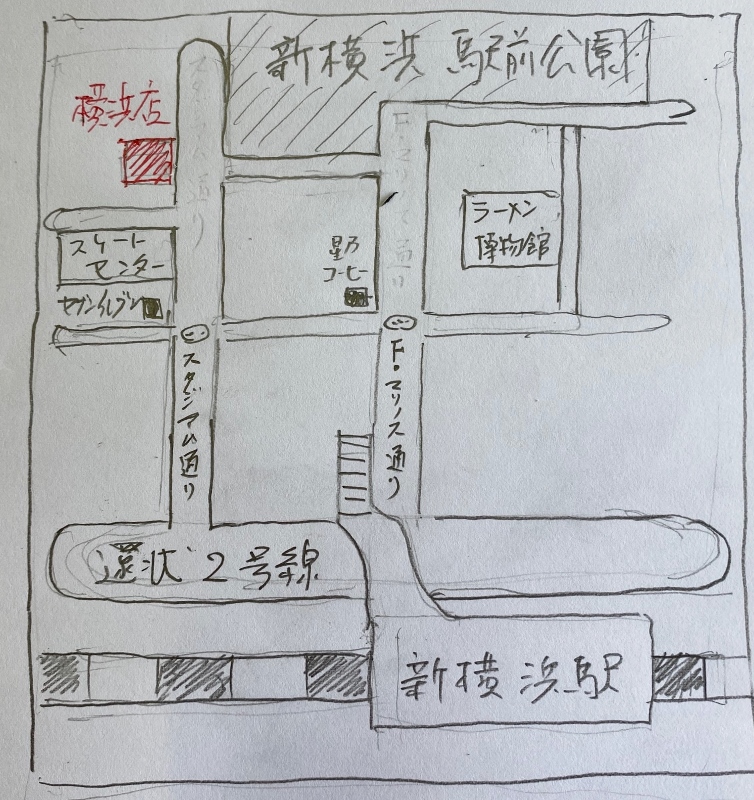 新横浜 駅前公園
横浜店
スタジアム通り
F・マリノス通り
ラーメン
博物館
スケート
センター
星乃
コーヒー
セブンイレブン
スタジアム通り
F・マリノス通り
還状2号線
新横浜駅